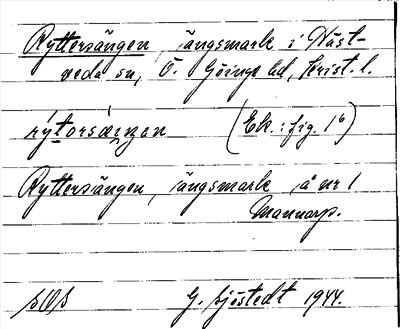 Ryttersängen, ängsmark i Häst-
veda sn, Ö. Göinge hd, Krist. l.
rytorsæŋən (Ek.: fig. 1⁶)
Ryttersängen, ängsmark å nr 1
Mannarp.
G. Sjöstedt 1944.